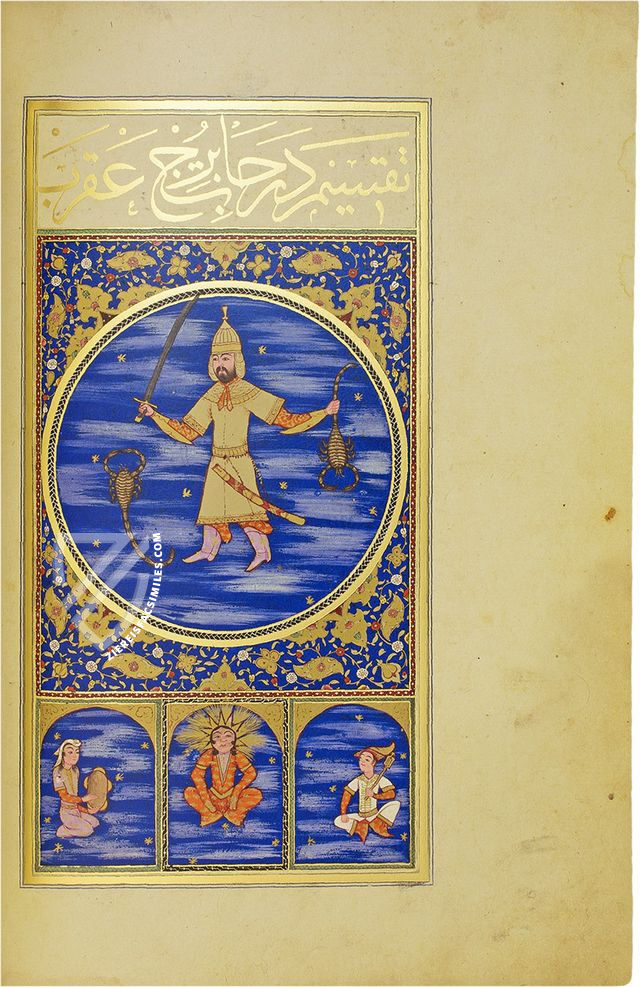 تقسیم درجات برج عقرب
ZIEREISFACSIMILES.COM